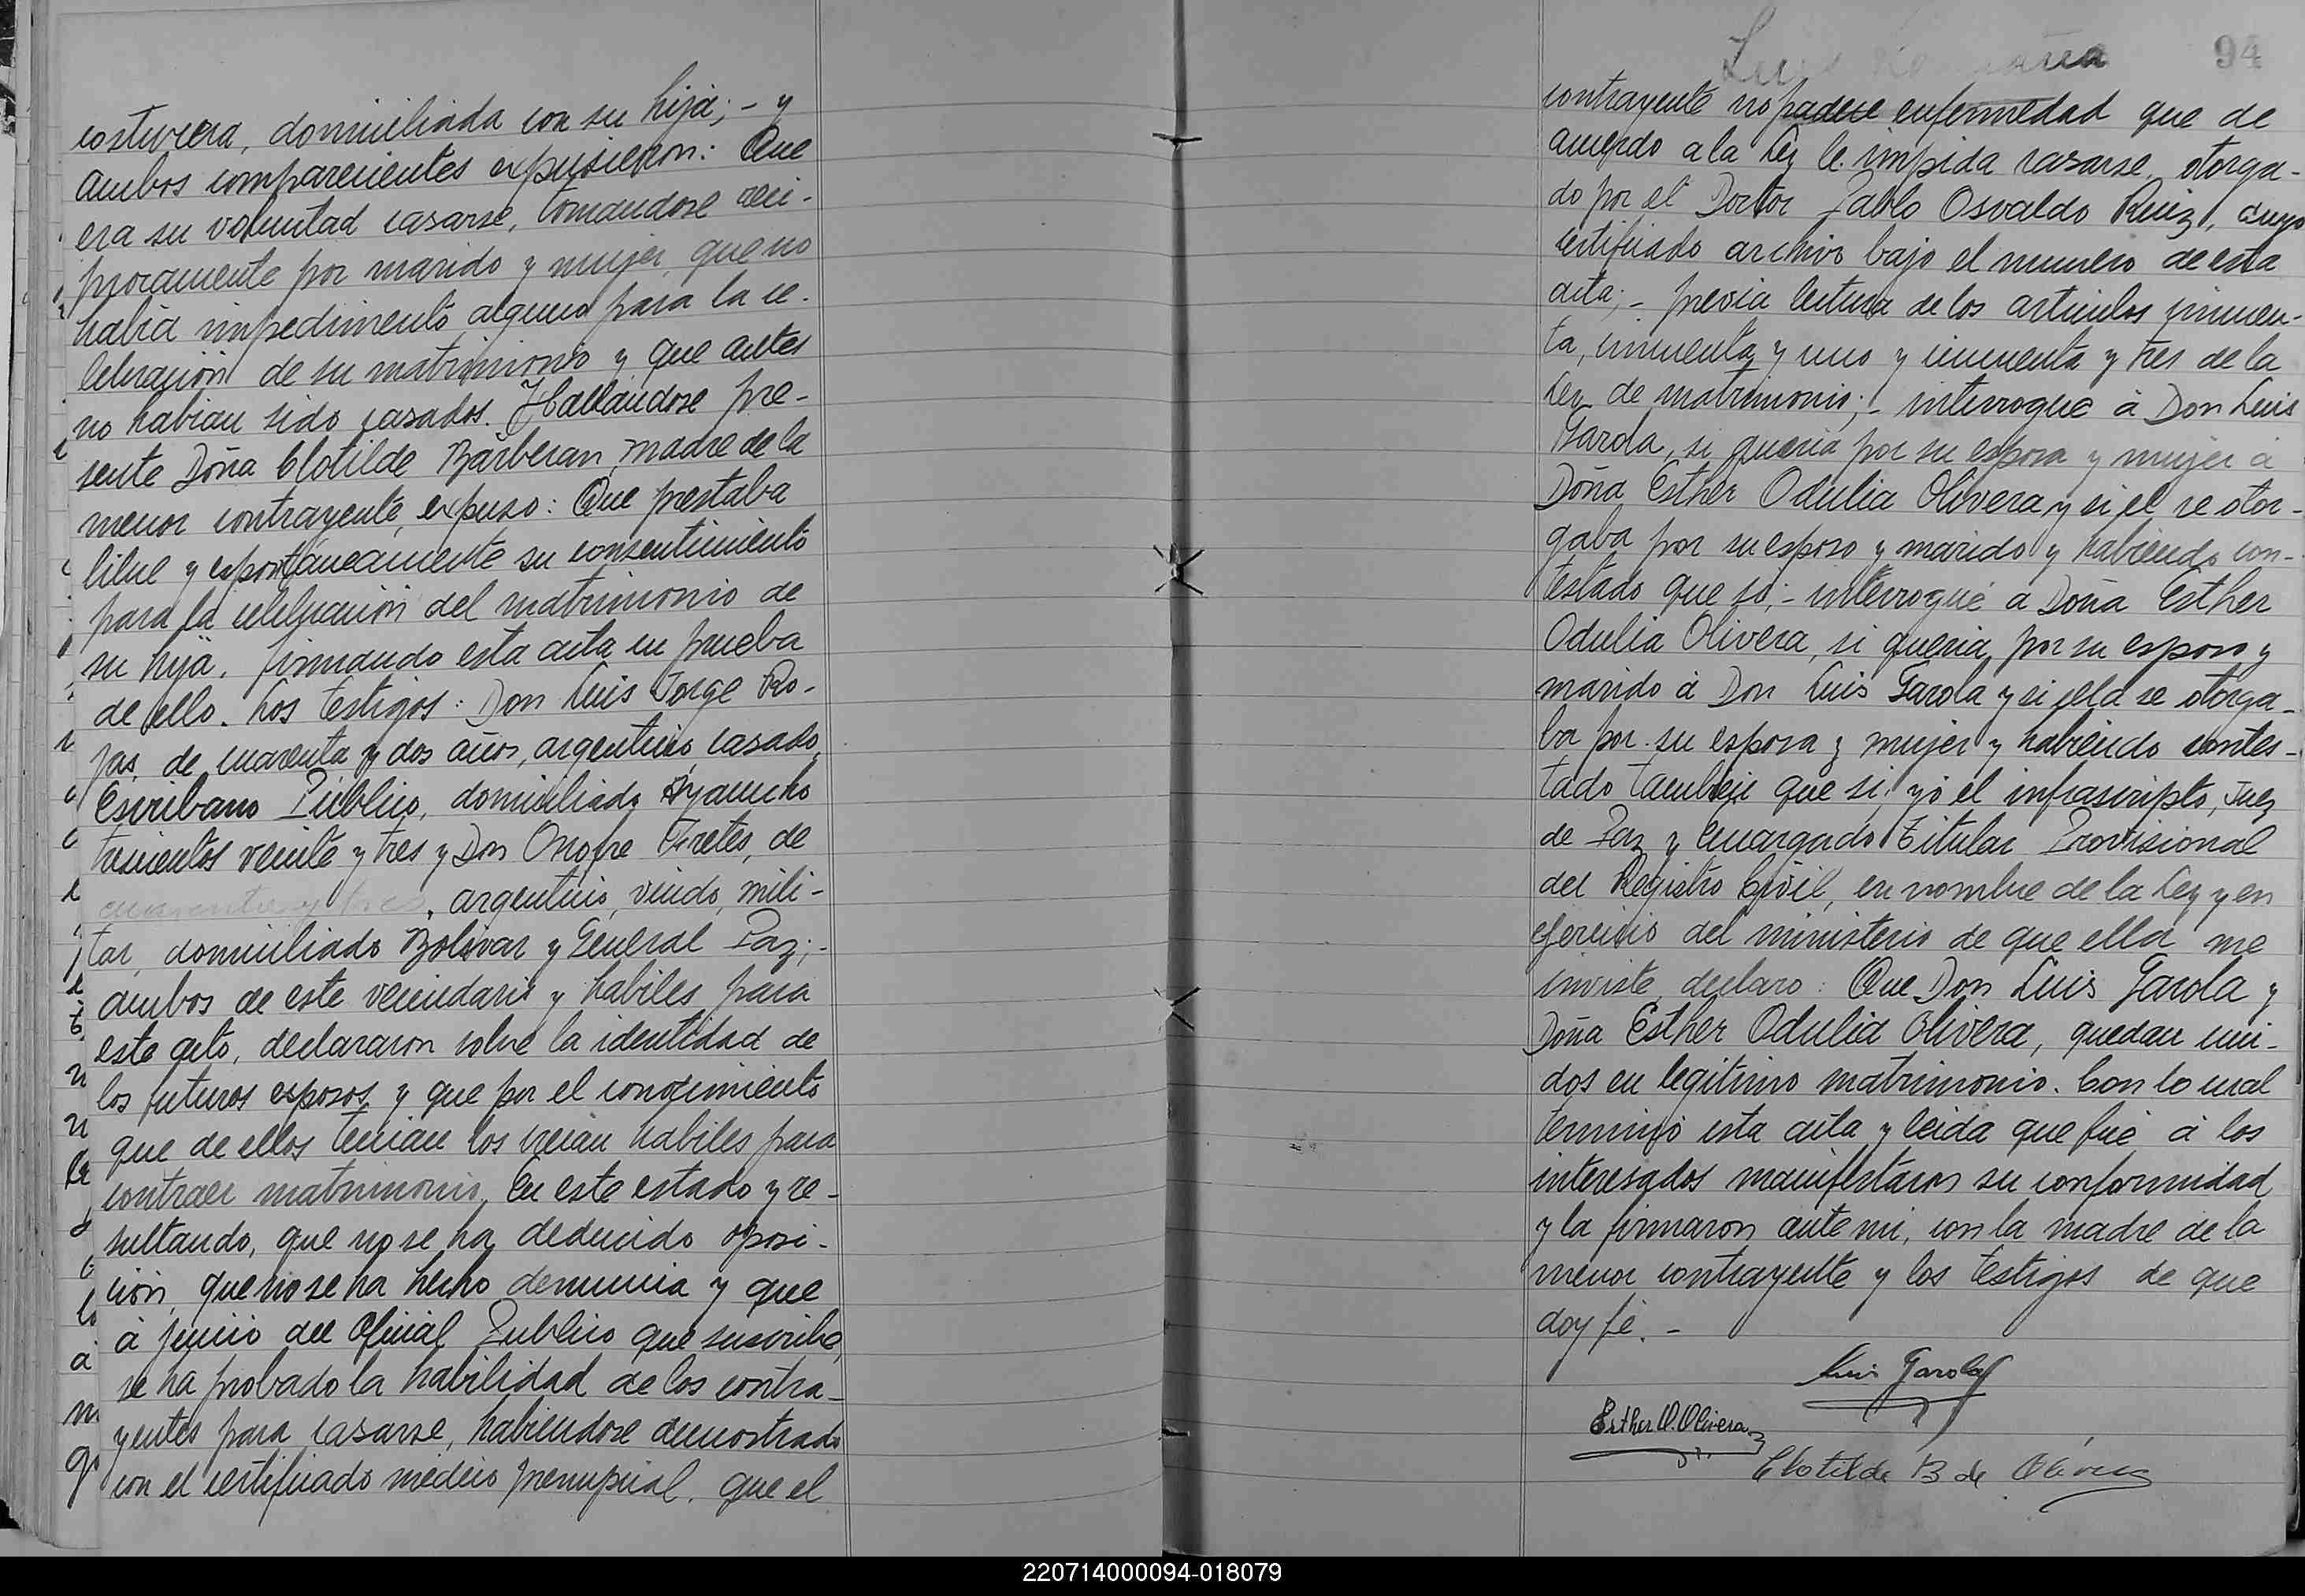 costurera, domiciliada con su hija; - y
ambos comparecientes expusieron: Que
era su voluntad casarse, tomandose reci-
procamente por marido y mujer, que no
habia impedimento alguno para la ce-
lebración de su matrimonio y que antes
no habian sido casados. Hallándose pre-
sente Doña Clotilde Barberan, madre de la
menor contrayente, expuso: Que prestaba
libre y espontáneamente su consentimiento
para la celebración del matrimonio de
su hija, firmando esta acta en prueba
de ello. Los testigos: Don Luis Jorge Ro-
jas, de cuarenta y dos años, argentino, casado,
Escribano Público, domiciliado Ayacucho
trescientos veinte y tres y Don Onofre Firetes, de
cuarenta y tres, argentino, viudo, mili-
tar, domiciliado Bolivar y General Paz; -
ambos de este vecindario y habiles para
este acto, declararon sobre la identidad de
los futuros esposos y que por el conocimiento
que de ellos tenian los creian habiles para
contraer matrimonio. En este estado y re-
sultando, que no se ha deducido oposi-
ción, que no se ha hecho denuncia y que
á juicio del Oficial Publico que suscribe,
se ha probado la habilidad de los contra-
yentes para casarse, habiendose demostrado
con el certificado medico prenupcial, que el
Luis
94
contrayente no padece enfermedad que de
acuerdo a la Ley le impida casarse, otorga-
do por el Doctor Pablo Osvaldo Ruiz, cuyo
certificado archivo bajo el numero de esta
acta; - previa lectura de los articulos cincuen-
ta, cincuenta y uno y cincuenta y tres de la
Ley de matrimonio; - interrogue á Don Luis
Garola, si queria por su esposa y mujer á
Doña Esther Odulia Olivera y si el se otor-
gaba por su esposo y marido y habiendo con-
testado que si; - interrogué a Doña Esther
Odulia Olivera, si queria por su esposo y
marido á Don Luis Garola y si ella se otorga-
ba por su esposa y mujer y habiendo contes-
tado tambien que si; yó el infrascripto, Juez
de Paz y Encargado Titular Provisional
del Registro Civil, en nombre de la Ley y en
ejercicio del ministerio de que ella me
inviste, declaro: Que Don Luis Garola y
Doña Esther Odulia Olivera, quedan uni-
dos en legitimo matrimonio. Con lo cual
terminó esta acta y leida que fué á los
interesados manifestaron su conformidad
y la firmaron ante mi, con la madre de la
menor contrayente y los testigos de que
doy fé. -
Luis Garola
Esther O. Olivera
Clotilde B de Olivera
220714000094-018079